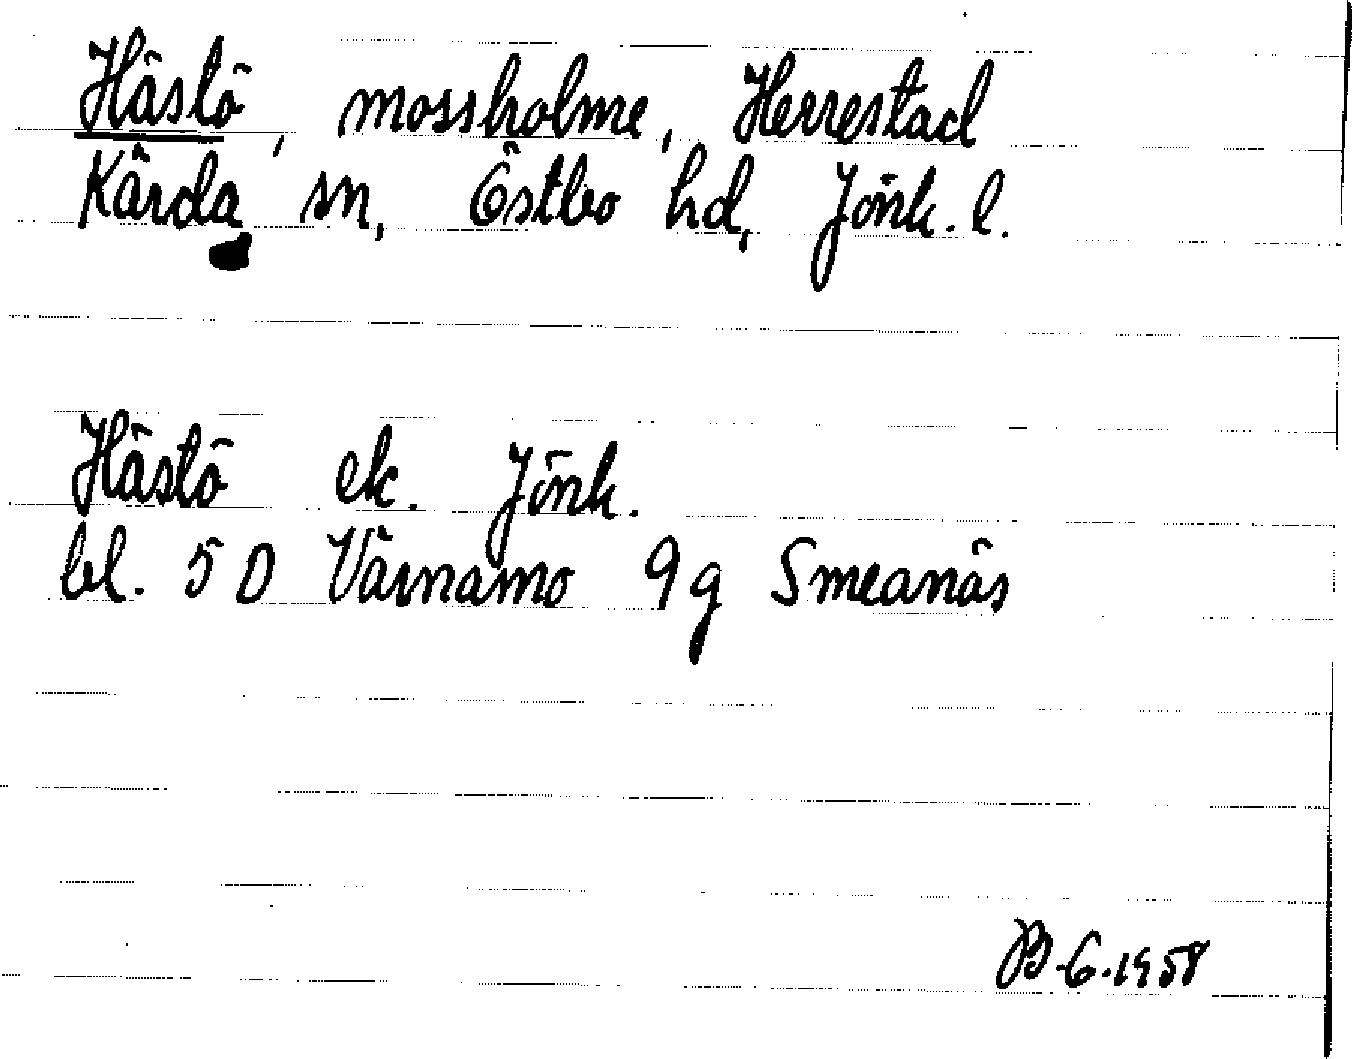 Hästö, mossholme, Herrestad
Kärda sn, Östbo hd, Jönk. l.
Hästö ek. Jönk.
bl. 5 D Värnamo 9 g Smeanäs
B. G. 1958